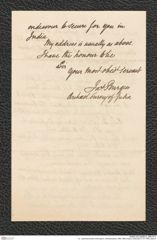 endeavour to secure for you in
India.
My address is usually as above.
I have the honour to be
Sir
Your most obedt servant
Jas Burgess
Archaeol. Survey of India